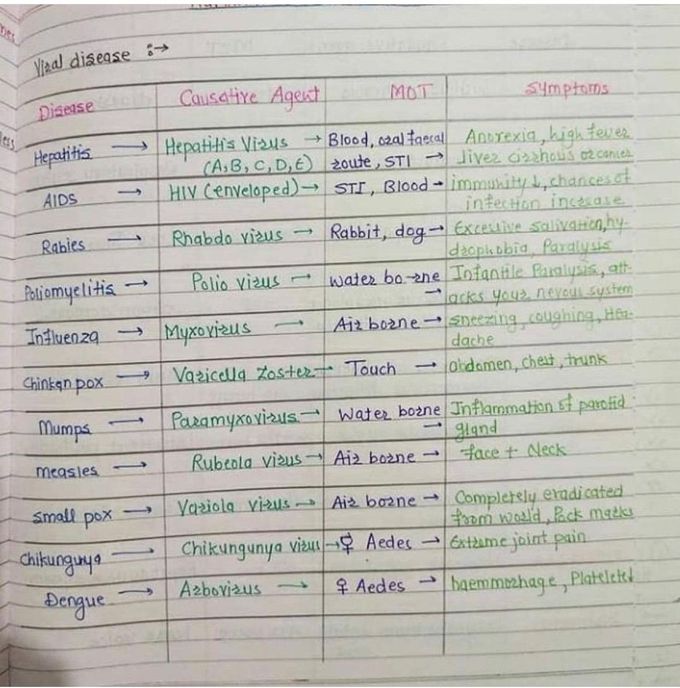 Viral disease :→
Disease Causative Agent MOT Symptoms
Hepatitis → Hepatitis Virus → Blood, oral faecal Anorexia, high fever
(A, B, C, D, E) route, STI → liver cirrhous or cancer
AIDS → HIV (enveloped) → STI, Blood → immunity ↓, chances of
infection increase
Rabies → Rhabdo virus → Rabbit, dog → Excessive salivation, hy
drophobia, Paralysis
Poliomyelitis → Polio virus → water bo-rne Infantile Paralysis, att-
→ acks your nervous system
Influenza → Myxovirus → Air borne → sneezing, coughing, Hea-
dache
Chinkan pox → Varicella Zoster → Touch → abdomen, chest, trunk
Mumps → Paramyxovirus → Water borne Inflammation of parotid
→ gland
measles → Rubeola virus → Air borne → face + Neck
Small pox → Variola virus → Air borne → Completely eradicated
from world, Pock marks
Chikungunya → Chikungunya virus → ♀ Aedes → Extreme joint pain
Dengue → Arbovirus → ♀ Aedes → haemmorhage, Platelete↓